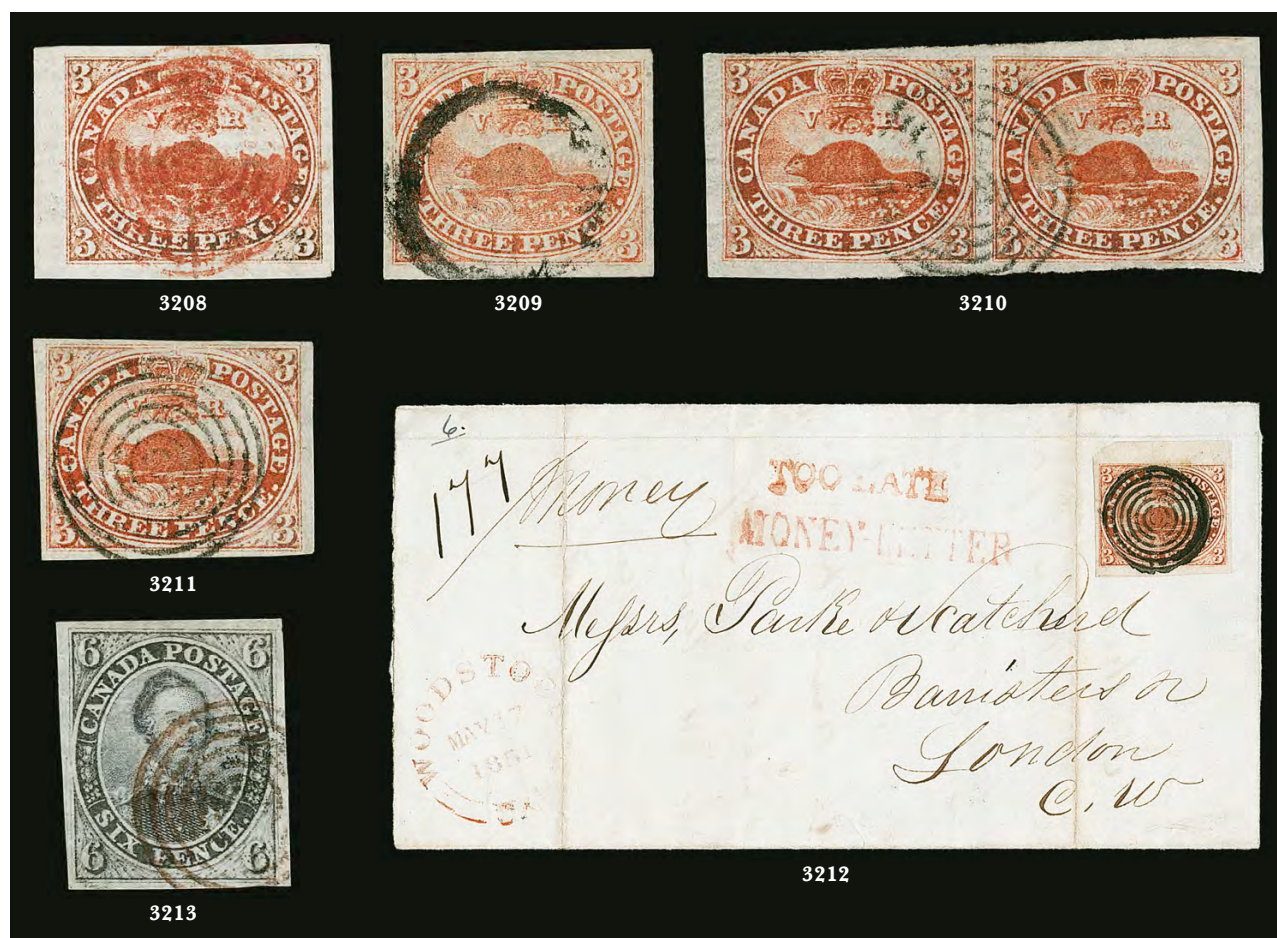 3 3
CANADA POSTAGE.
V R
THREE PENCE.
3 3
3208
3 3
CANADA POSTAGE.
V R
THREE PENCE.
3 3
3209
3 3 3 3
CANADA POSTAGE. CANADA POSTAGE.
V R V R
THREE PENCE. THREE PENCE.
3 3 3 3
3210
3 3
CANADA POSTAGE.
R
THREE PENCE.
3 3
3211
6.
177
Money
TOO LATE
MONEY-LETTER
3 3
3 3
Messrs, Parke &
Barristers
London
C. W
WOODSTOC
MAY 17
1851
3212
6 6
CANADA POSTAGE.
SIX PENCE.
6 6
3213